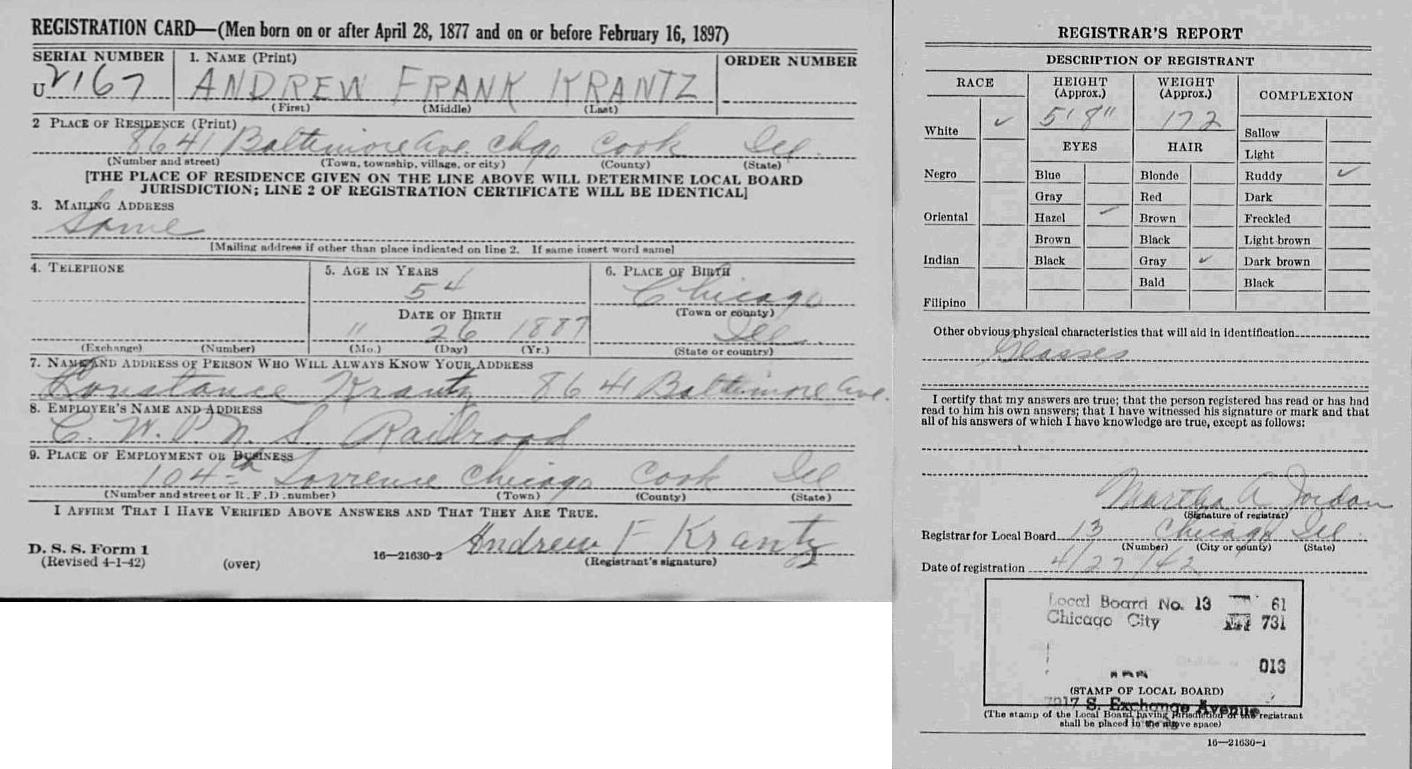 REGISTRATION CARD—(Men born on or after April 28, 1877 and on or before February 16, 1897)
SERIAL NUMBER 1. NAME (Print) ORDER NUMBER
U 2167 ANDREW FRANK KRANTZ
(First) (Middle) (Last)
2 PLACE OF RESIDENCE (Print)
8641 Baltimore Ave. Chgo Cook Ill.
(Number and street) (Town, township, village, or city) (County) (State)
[THE PLACE OF RESIDENCE GIVEN ON THE LINE ABOVE WILL DETERMINE LOCAL BOARD
JURISDICTION; LINE 2 OF REGISTRATION CERTIFICATE WILL BE IDENTICAL]
3. MAILING ADDRESS
Same
[Mailing address if other than place indicated on line 2. If same insert word same]
4. TELEPHONE 5. AGE IN YEARS 6. PLACE OF BIRTH
54 Chicago
DATE OF BIRTH (Town or county)
11 26 1887 Ill.
(Exchange) (Number) (Mo.) (Day) (Yr.) (State or country)
7. NAME AND ADDRESS OF PERSON WHO WILL ALWAYS KNOW YOUR ADDRESS
Constance Krantz 8641 Baltimore Ave.
8. EMPLOYER'S NAME AND ADDRESS
C. W. P. N. S. Railroad
9. PLACE OF EMPLOYMENT OR BUSINESS
104th Torrence Chicago Cook Ill
(Number and street or R. F. D. number) (Town) (County) (State)
I AFFIRM THAT I HAVE VERIFIED ABOVE ANSWERS AND THAT THEY ARE TRUE.
Andrew F Krantz
D. S. S. Form 1
(Revised 4-1-42) (over) 16—21630-2 (Registrant's signature)
REGISTRAR'S REPORT
DESCRIPTION OF REGISTRANT
RACE HEIGHT (Approx.) WEIGHT (Approx.) COMPLEXION
5'8" 172
White ✓ Sallow
EYES HAIR Light
Negro Blue Blonde Ruddy ✓
Gray Red Dark
Oriental Hazel ✓ Brown Freckled
Brown Black Light brown
Indian Black Gray ✓ Dark brown
Bald Black
Filipino
Other obvious physical characteristics that will aid in identification
Glasses
I certify that my answers are true; that the person registered has read or has had
read to him his own answers; that I have witnessed his signature or mark and that
all of his answers of which I have knowledge are true, except as follows:
Martha A Jordan
(Signature of registrar)
Registrar for Local Board 13 Chicago Ill.
(Number) (City or county) (State)
Date of registration 4/27/42
Local Board No. 13 61
Chicago City 731
013
(STAMP OF LOCAL BOARD)
S. Exchange Avenue
(The stamp of the Local Board having jurisdiction of the registrant
shall be placed in the above space)
16—21630-1